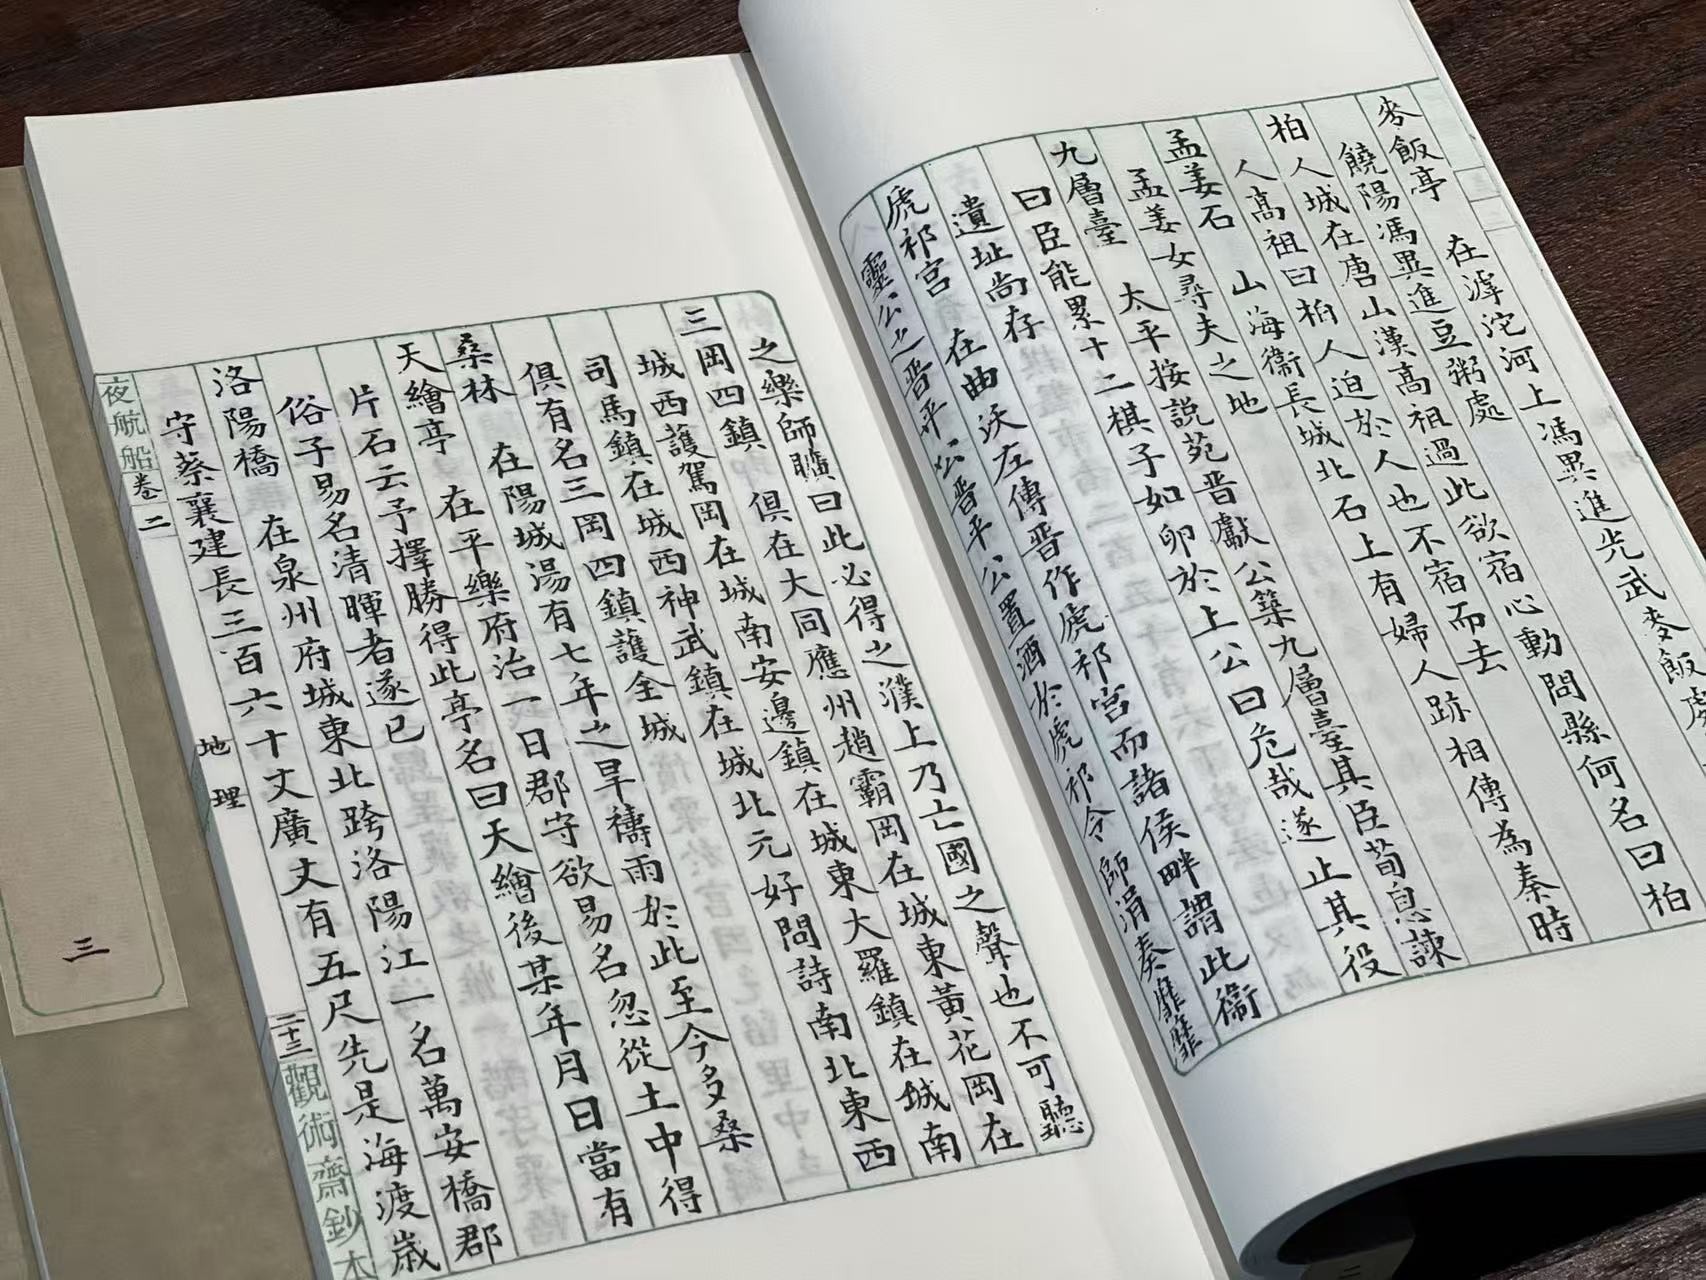 麥飯亭 在滹沱河上馮異進光武麥飯處
饒陽馮異進豆粥處
柏人城在唐山漢高祖過此欲宿心動問縣何名曰柏
人高祖曰柏人迫於人也不宿而去
孟姜石 山海衞長城北石上有婦人跡相傳為秦時
孟姜女尋夫之地
九層臺 太平按說苑晋獻公築九層臺其臣荀息諫
曰臣能累十二棋子如卵於上公曰危哉遂止其役
遺址尚存
虒祁宮 在曲沃左傳晋作虒祁宮而諸侯畔謂此衞
靈公之晋平公晋平公置酒於虒祁令師涓奏靡靡
之樂師曠曰此必得之濮上乃亡國之聲也不可聽
三岡四鎮 俱在大同應州趙霸岡在城東黃花岡在
城西護駕岡在城南安邊鎮在城東大羅鎮在城南
司馬鎮在城西神武鎮在城北元好問詩南北東西
俱有名三岡四鎮護全城
桑林 在陽城湯有七年之旱禱雨於此至今多桑
天繪亭 在平樂府治一日郡守欲易名忽從土中得
片石云予擇勝得此亭名曰天繪後某年月日當有
俗子易名清暉者遂已
洛陽橋 在泉州府城東北跨洛陽江一名萬安橋郡
守蔡襄建長三百六十丈廣丈有五尺先是海渡歲
夜航船卷二 地理 二十三 觀術齋鈔本
三